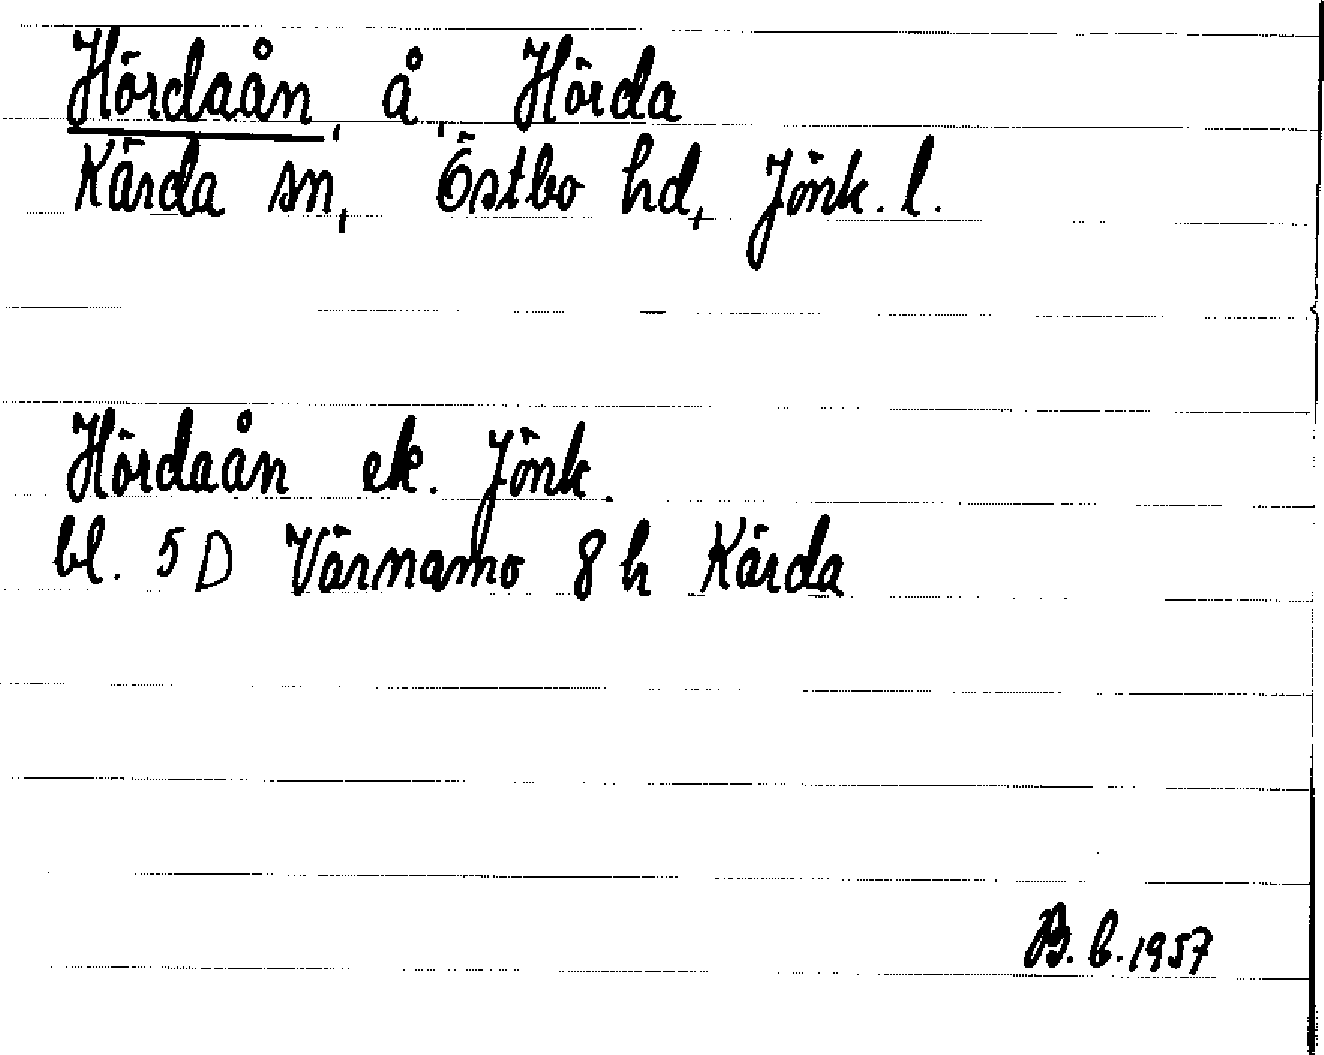 Hördaån, å, Hörda
Kärda sn, Östbo hd, Jönk. l.
Hördaån ek. Jönk.
bl. 5D Värnamo 8h Kärda
B.b. 1957